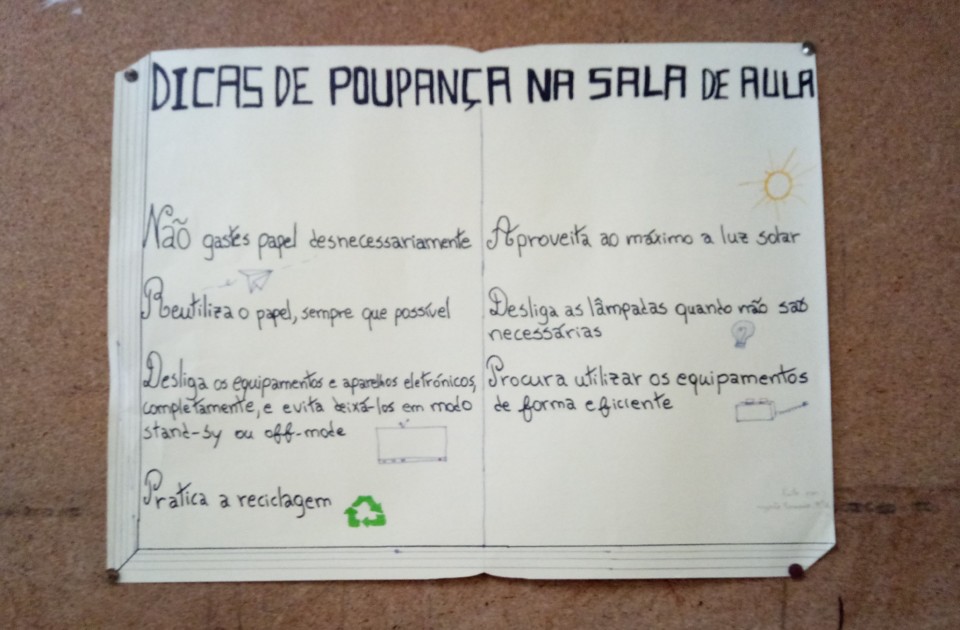 DICAS DE POUPANÇA NA SALA DE AULA
Não gastes papel desnecessariamente
Reutiliza o papel, sempre que possível
Desliga os equipamentos e aparelhos eletrónicos,
completamente, e evita deixá-los em modo
stand-by ou off-mode
Pratica a reciclagem
Aproveita ao máximo a luz solar
Desliga as lâmpadas quando não são
necessárias
Procura utilizar os equipamentos
de forma eficiente